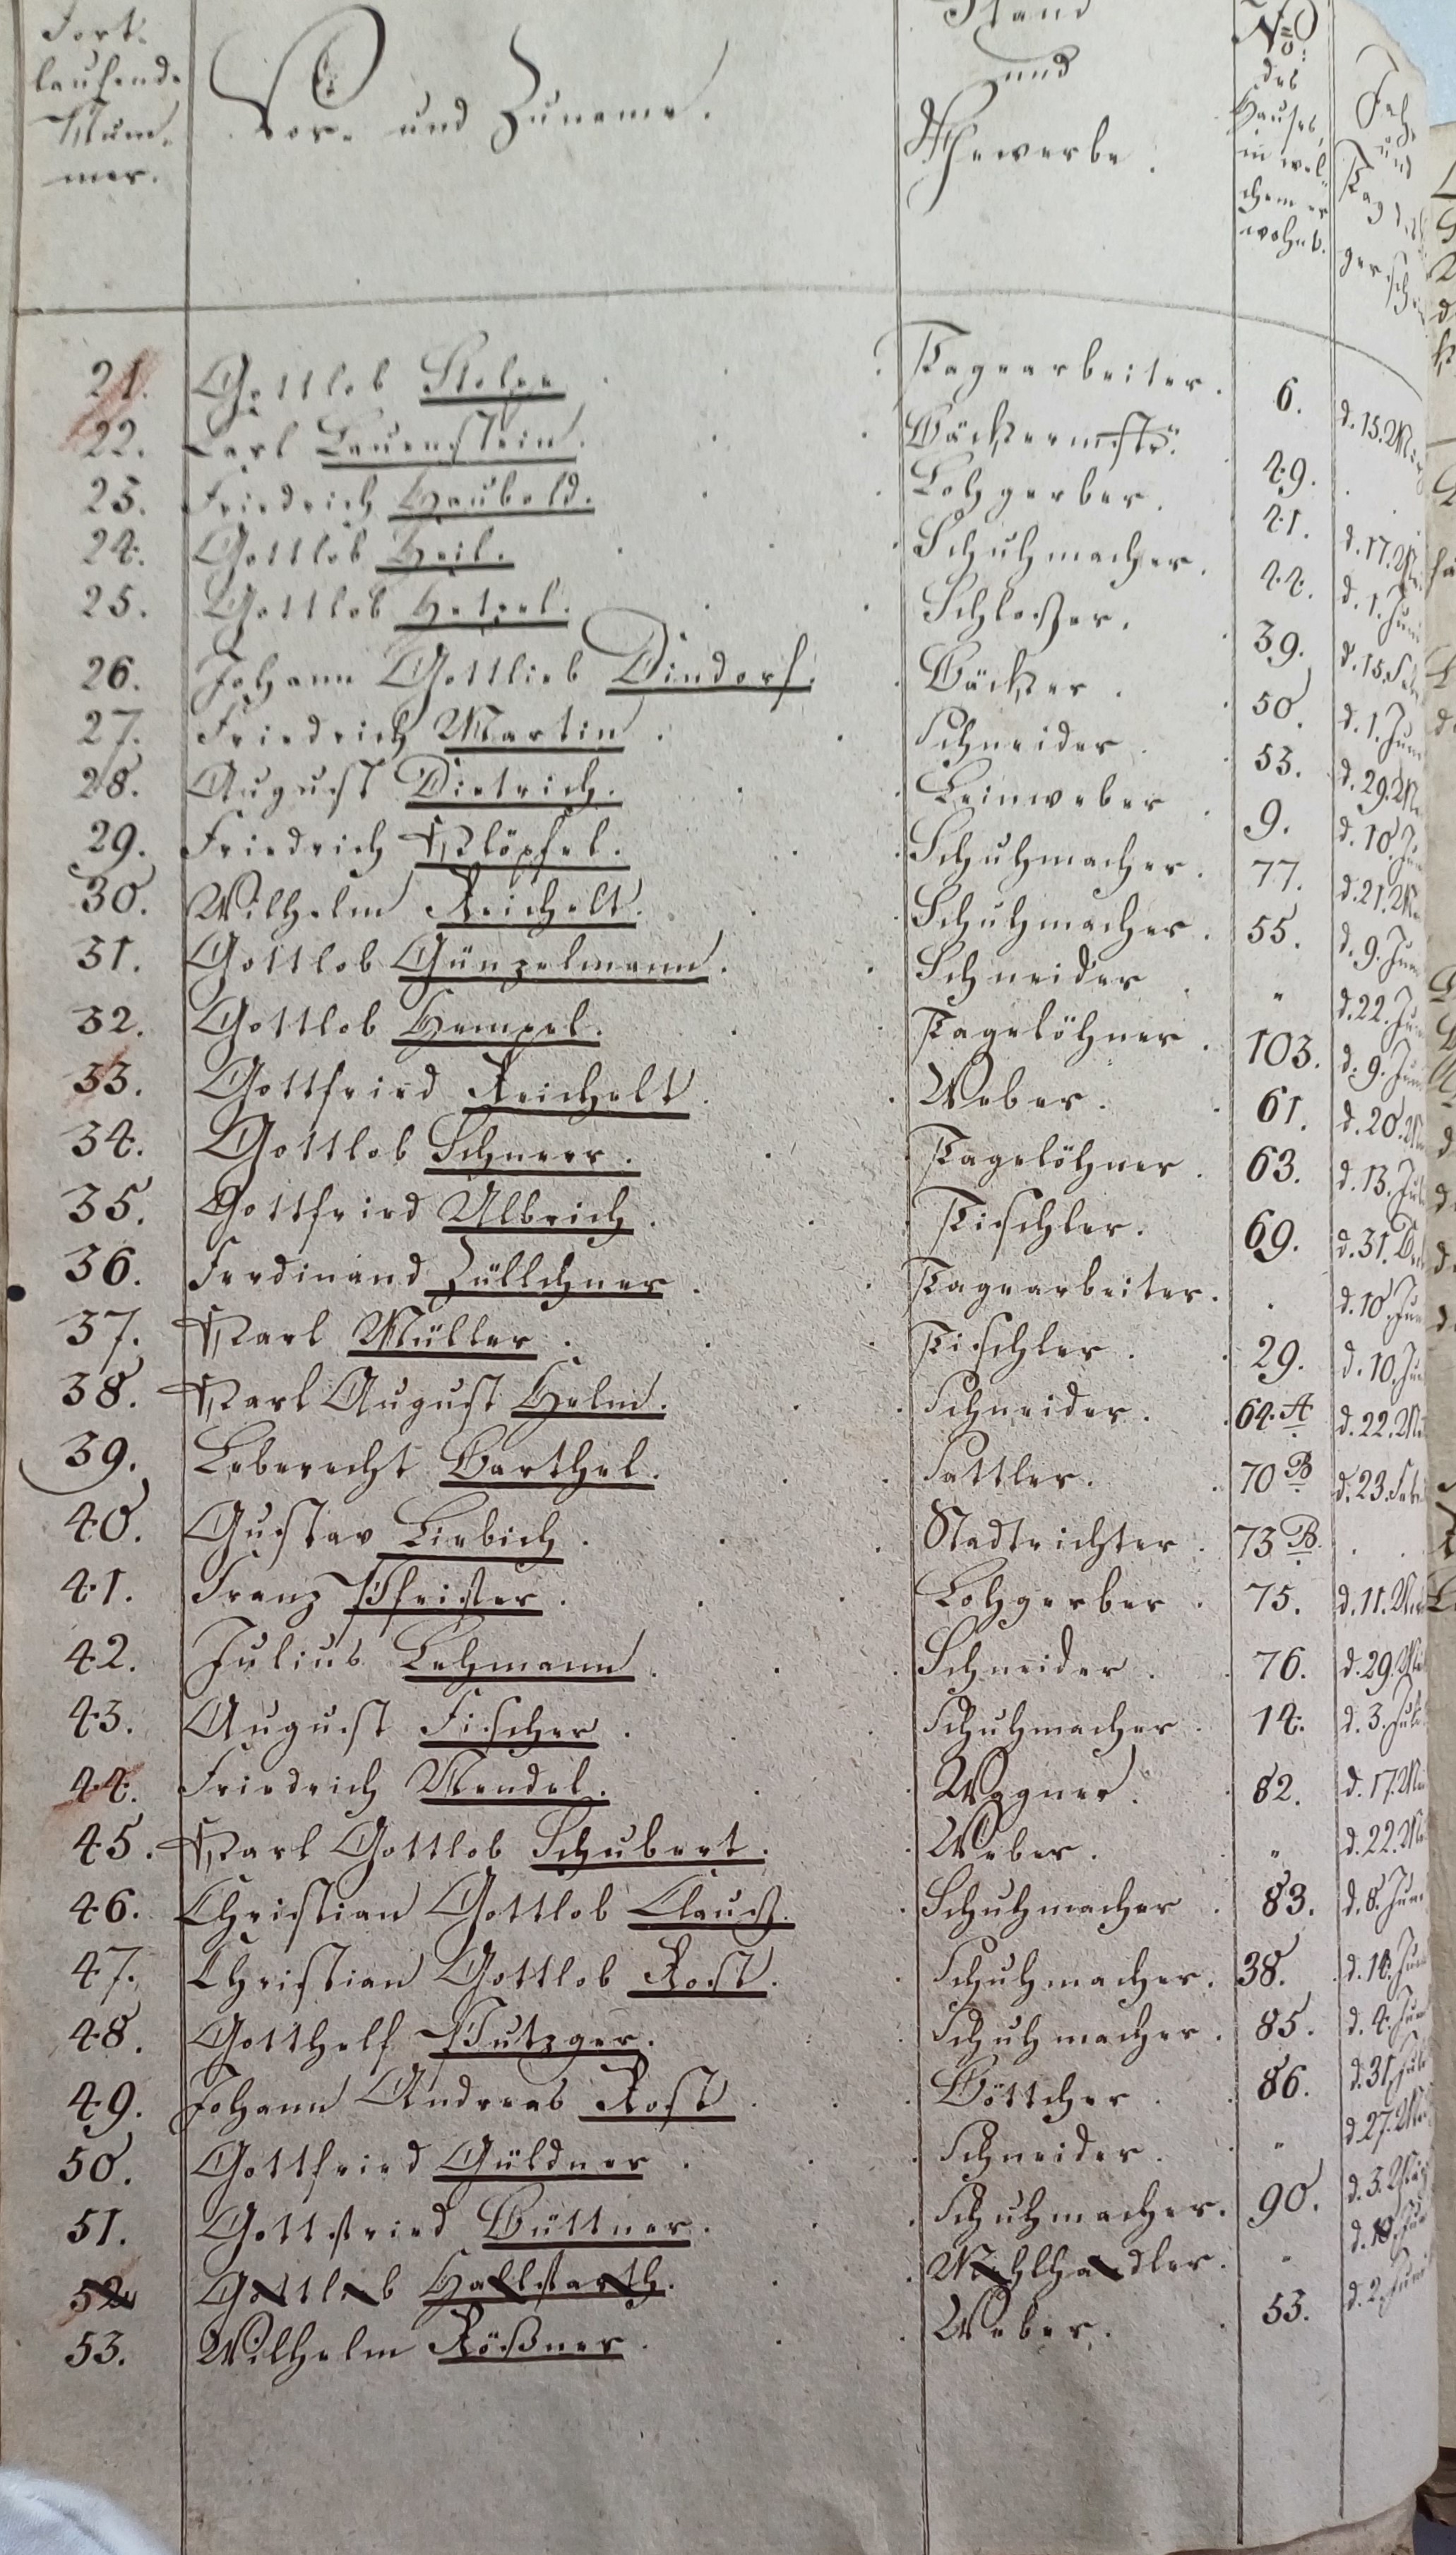 Fort-
laufende
Num-
mer.
Vor- und Zuname.
Stand
und
Gewerbe.
No:
des
Hauses,
in wel-
chem er
wohnt.
und
21. Gottlob Stolze Tagearbeiter. 6. d. 15.
22. Carl Lauenstein. Bäckermstr. 49.
23. Friedrich Haubold. Lohgerber. 41. d. 17.
24. Gottlob Heil. Schuhmacher. 44. d. 1. Juni
25. Gottlob Hetzel. Schloßer. 39. d. 15.
26. Johann Gottlieb Dindorf. Bäcker. 50. d. 1.
27. Friedrich Martin. Schneider. 53. d. 29.
28. August Dietrich. Leinweber 9. d. 10.
29. Friedrich Klöpfel. Schuhmacher. 77. d. 21.
30. Wilhelm Reichelt. Schuhmacher. 55. d. 9.
31. Gottlob Günzelmann. Schneider. " d. 22.
32. Gottlob Hempel. Tagelöhner. 103. d. 9.
33. Gottfried Reichelt. Weber. 61. d. 20.
34. Gottlob Schneer. Tagelöhner. 63. d. 13.
35. Gottfried Ulbrich. Tischler. 69. d. 31.
36. Ferdinand Züllchner. Tagearbeiter. . d. 10.
37. Karl Müller. Tischler. 29. d. 10.
38. Karl August Helm. Schneider. 64. A d. 22.
39. Leberecht Barthel. Sattler. 70 B d. 23.
40. Gustav Liebich. Stadtrichter. 73 B.
41. Franz Pfeister. Lohgerber. 75. d. 11.
42. Julius Lehmann. Schneider. 76. d. 29.
43. August Fischer. Schuhmacher. 14. d. 3.
44. Friedrich Mendel. Wagner. 82. d. 17.
45. Karl Gottlob Schubert. Weber. " d. 22.
46. Christian Gottlob Clauß. Schuhmacher. 83. d. 8.
47. Christian Gottlob Rost. Schuhmacher. 38. d. 14.
48. Gotthelf Putzger. Schuhmacher. 85. d. 4.
49. Johann Andreas Rost. Böttcher. 86. d. 31.
50. Gottfried Güldner. Schneider. " d. 27.
51. Gottfried Büttner. Schuhmacher. 90. d. 3.
52. Gottlob Hallbarth. Mehlhändler. "
53. Wilhelm Rößner. Weber. 53. d. 2.